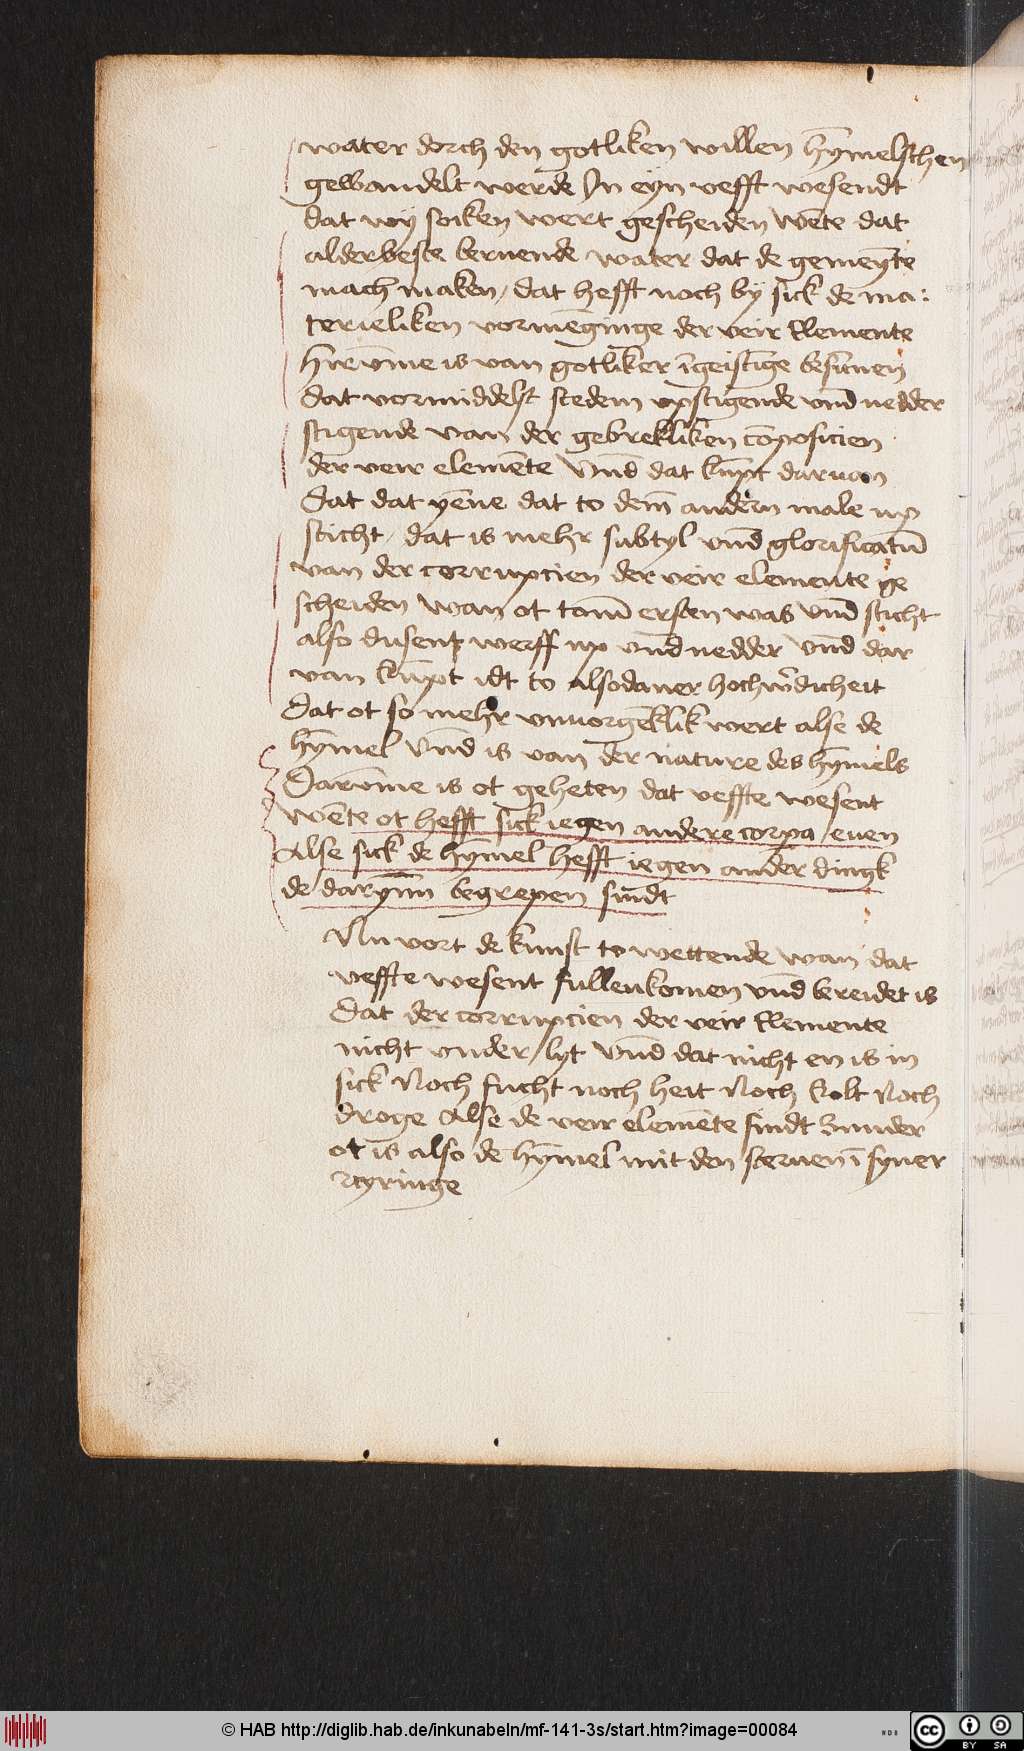 water dorch den gotliken willen hȳmelschen
gewandelt werde In eyn vefft wesendt
dat wÿ soiken wert gescheiden wēte dat
alderbeste bernende water dat de gemeyn̄te
mach maken / dat hefft noch bÿ sick de ma:
terieliken vormēginge der veir Elemente
hirūme is van gotliker īgeistīge besūnen
dat vormiddelst stedem vpstigende vn̄d nedder
stigende van der gebrekliken cōposicien
der veir elemēte Vn̄d dat kūpt daruan
Dat dat yēne dat to dem̄ andern male up
sticht / dat is mehr subtyl vn̄d glorificatū
van der corrupcien der veir elemente ge
scheiden wan ot tom̄ ersten was vn̄d sticht
also dusent werff up vn̄d nedder Vn̄d dar
van kūpt idt to alsodaner hochw̄dicheit
Dat ot so mehr vnuorgēklik wert alse de
hȳmel Vn̄d is van der nature des hȳmels
Darōme is ot geheten dat veffte wesent
wēte ot hefft sick iegen andere corpa / euen
Alse sick de hȳmel hefft iegen ander dingk
de darynn̄ begrepen sindt
Nu vort de kunst to wettende wan dat
veffte wesent fullenkomen vn̄d bereidet is
Dat der corrupcien der veir Elemente
nicht vnder lyt Vn̄d dat nicht en is in
sick Noch fucht noch heit Noch kolt Noch
droge Alse de veir elemēte sindt Sunder
ot is also de hȳmel mit den sternen ī syner
rcyringe
© HAB http://diglib.hab.de/inkunabeln/mf-141-3s/start.htm?image=00084
cc BY SA